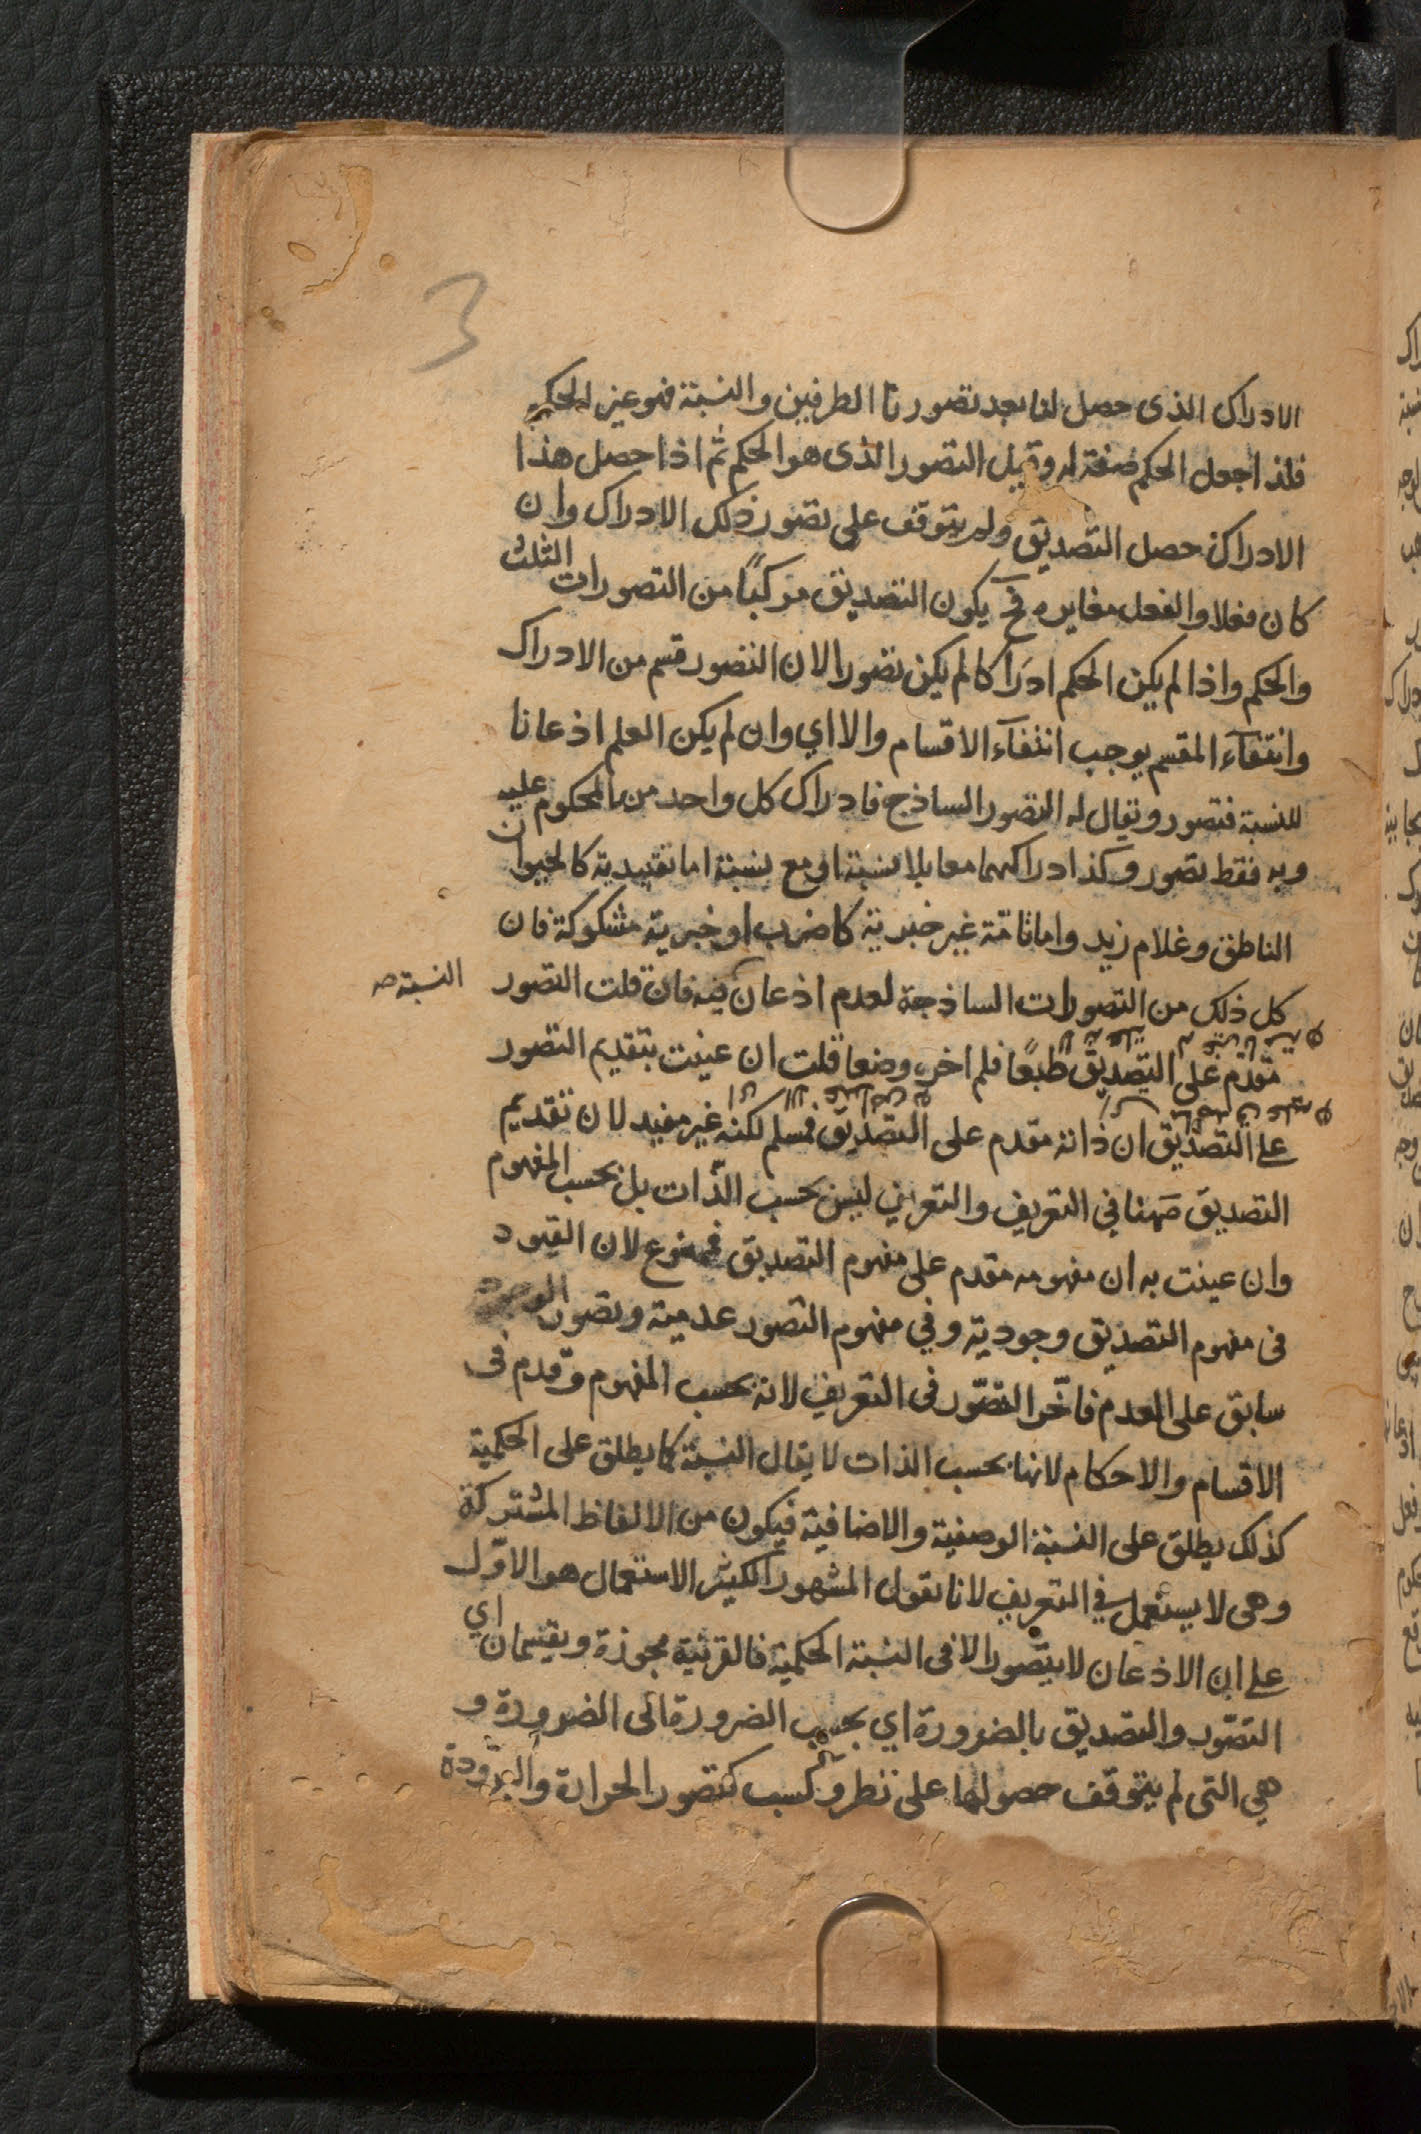 3
الادراك الذى حصل لنا بعد تصورنا الطرفين والنسبة فهو عين الحكم
فلذا جعل الحكم صفة له وقيل التصور الذى هو الحكم ثم اذا حصل هذا
الادراك حصل التصديق ولم يتوقف على تصور ذلك الادراك وان
كان فعلا والفعل مغايره فح يكون التصديق مركبًا من التصورات الثلث
والحكم واذا لم يكن الحكم ادراكا لم يكن تصورا لان التصور قسم من الادراك
وانتفاء المقسم يوجب انتفاء الاقسام والا اي وان لم يكن العلم اذعانا
للنسبة فتصور ويقال له التصور الساذج فادراك كل واحد من المحكوم عليه
وبه فقط تصور وكذا ادراكهما معا بلا نسبة او مع نسبة اما تقييدية كالحيوان
الناطق وغلام زيد واما تامة غير خبرية كاضرب او خبرية مشكوكة فان
كل ذلك من التصورات الساذجة لعدم اذعان فيه فان قلت التصور
النسبة صه
مقدم على التصديق طبعًا فلم اخر وضعا قلت ان عينت بتقديم التصور
على التصديق ان ذاته مقدم على التصديق فمسلم لكنه غير مفيد لان تقديم
التصديق ههنا في التعريف والتعريف ليس بحسب الذات بل بحسب المفهوم
وان عينت به ان مفهومه مقدم على مفهوم التصديق فممنوع لان القيود
فى مفهوم التصديق وجودية وفي مفهوم التصور عدمية وتصور الوجود
سابق على العدم فاخّر التصّور فى التعريف لانه بحسب المفهوم وقدم فى
الاقسام والاحكام لانها بحسب الذات لا يقال النسبة كما يطلق على الحكمية
كذلك يطلق على النسبة الوصفية والاضافية فيكون من الالفاظ المشتركة
وهى لا يستعمل في التعريف لانا نقول المشهور الكثير الاستعمال هو الاوّل
على ان الاذعان لا يتصور الا فى النسبة الحكمية فالقرينة مجوزة ويقتسمان اي
التصّور والتصديق بالضرورة اي بحسب الضرورة الى الضرورة و
هي التى لم يتوقف حصولها على نظر وكسب كتصور الحرارة والبرودة